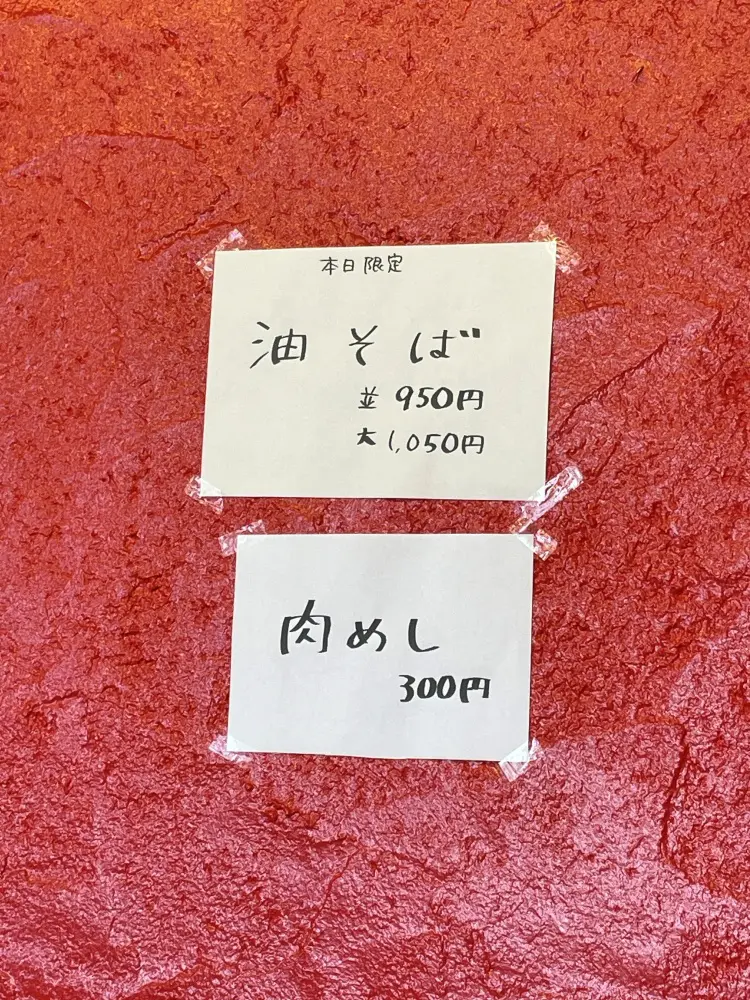 本日限定
油そば
並 950円
大 1,050円
肉めし
300円